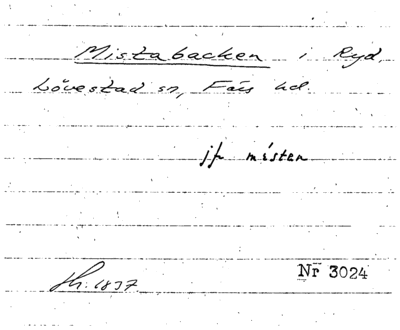 Mistabacken i Ryd,
Lövestad sn, Färs hd.
jfr misten
Nr 3024
1837